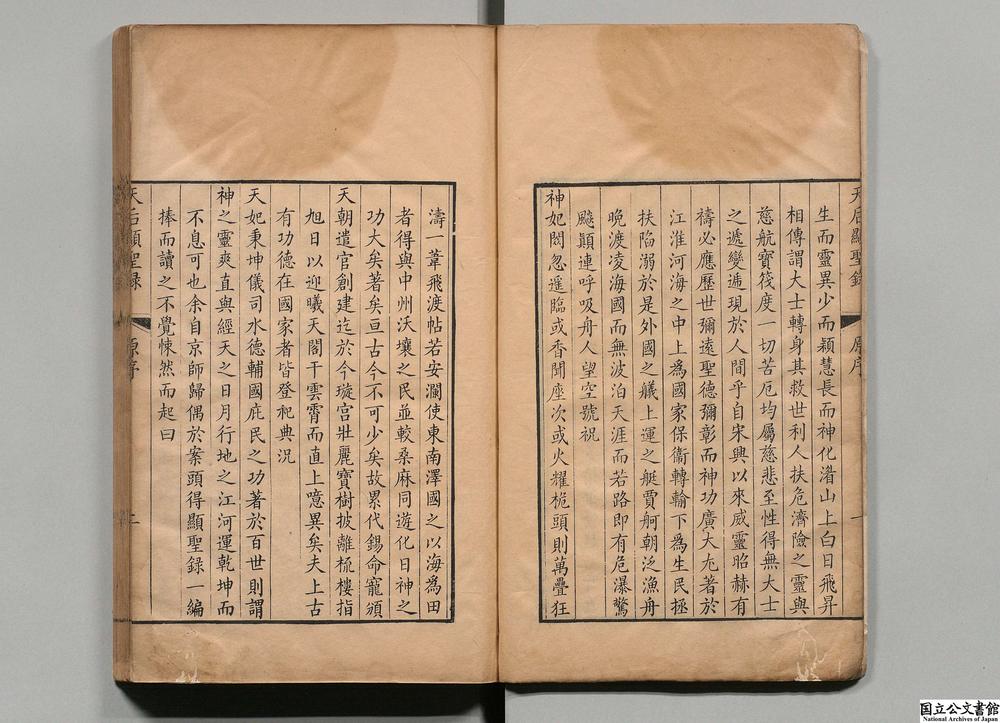 天后顯聖錄 原序 一
生而靈異少而穎慧長而神化湄山上白日飛昇
相傳謂大士轉身其救世利人扶危濟險之靈與
慈航寶筏度一切苦厄均屬慈悲至性得無大士
之遞變遞現於人間乎自宋興以來威靈昭赫有
禱必應歷世彌遠聖德彌彰而神功廣大尤著於
江淮河海之中上為國家保衛轉輸下為生民拯
扶陷溺於是外國之艤上運之艇賈舸朝泛漁舟
晚渡凌海國而無波泊天涯而若路即有危瀑驚
飈顛連呼吸舟人望空號祝
神妃閟忽遙臨或香聞座次或火耀桅頭則萬疊狂
濤一葦飛渡帖若安瀾使東南澤國之以海為田
者得與中州沃壤之民並較桑麻同遊化日神之
功大矣著矣亘古今不可少矣故累代錫命寵頒
天朝遣官創建迄於今璇宮壯麗寶樹披離梳樓指
旭日以迎曦天閣干雲霄而直上噫異矣夫上古
有功德在國家者皆登祀典況
天妃秉坤儀司水德輔國庇民之功著於百世則謂
神之靈爽直與經天之日月行地之江河運乾坤而
不息可也余自京師歸偶於案頭得顯聖錄一編
捧而讀之不覺悚然而起曰
天后顯聖錄 原序 二
国立公文書館
National Archives of Japan